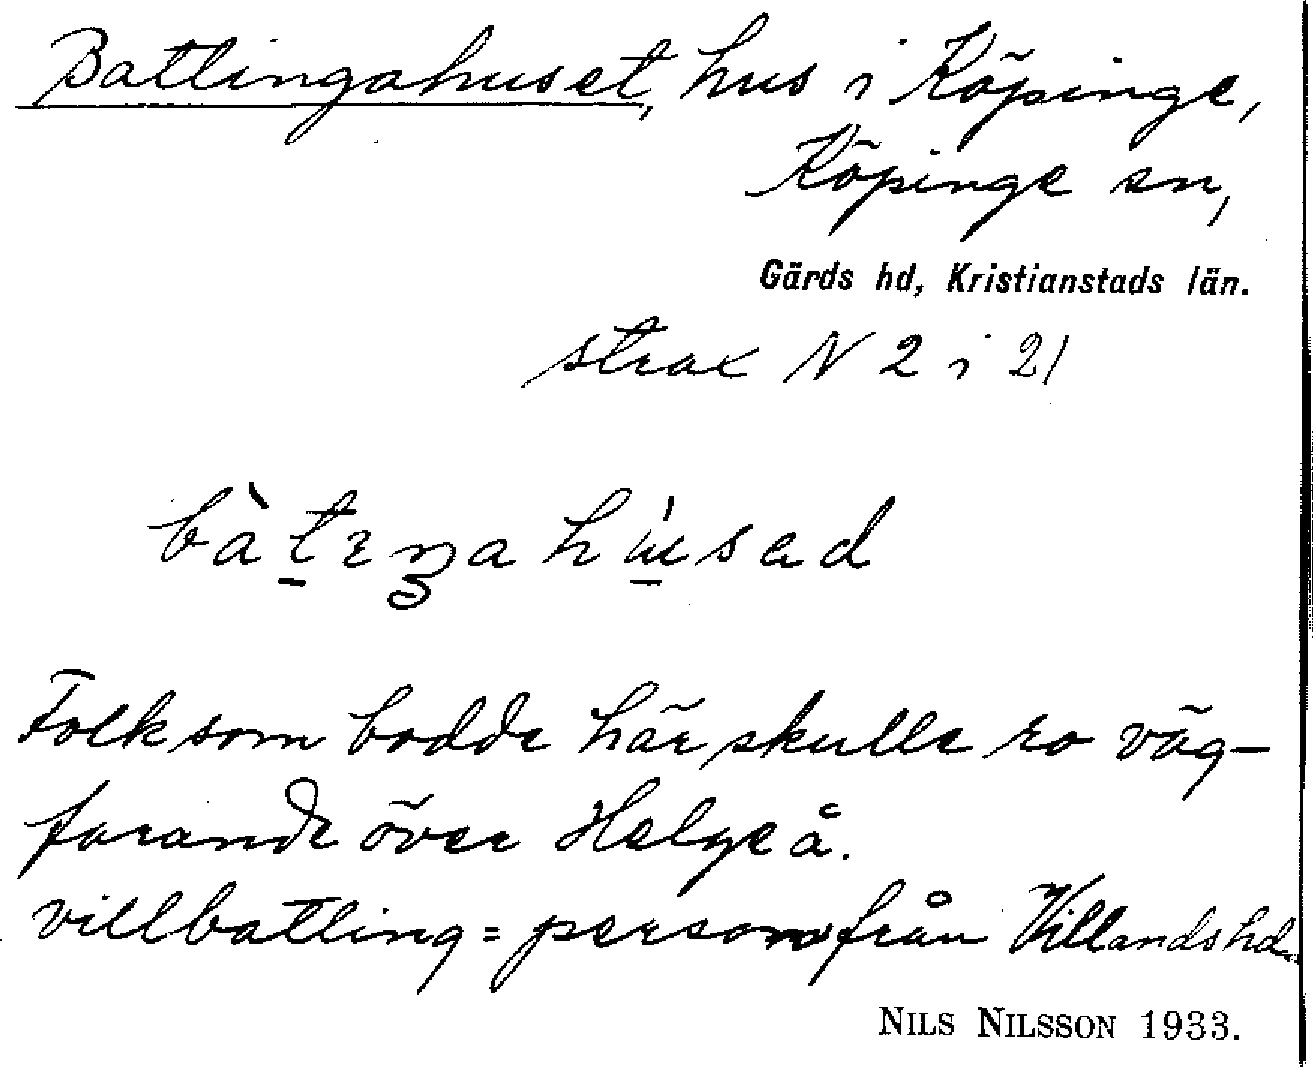 Batlingahuset, hus i Köpinge,
Köpinge sn,
Gärds hd, Kristianstads län.
strax N 2 i 21
Folk som bodde här skulle ro väg-
farande över Helge å.
villbatling = person från Villands hd.
NILS NILSSON 1933.